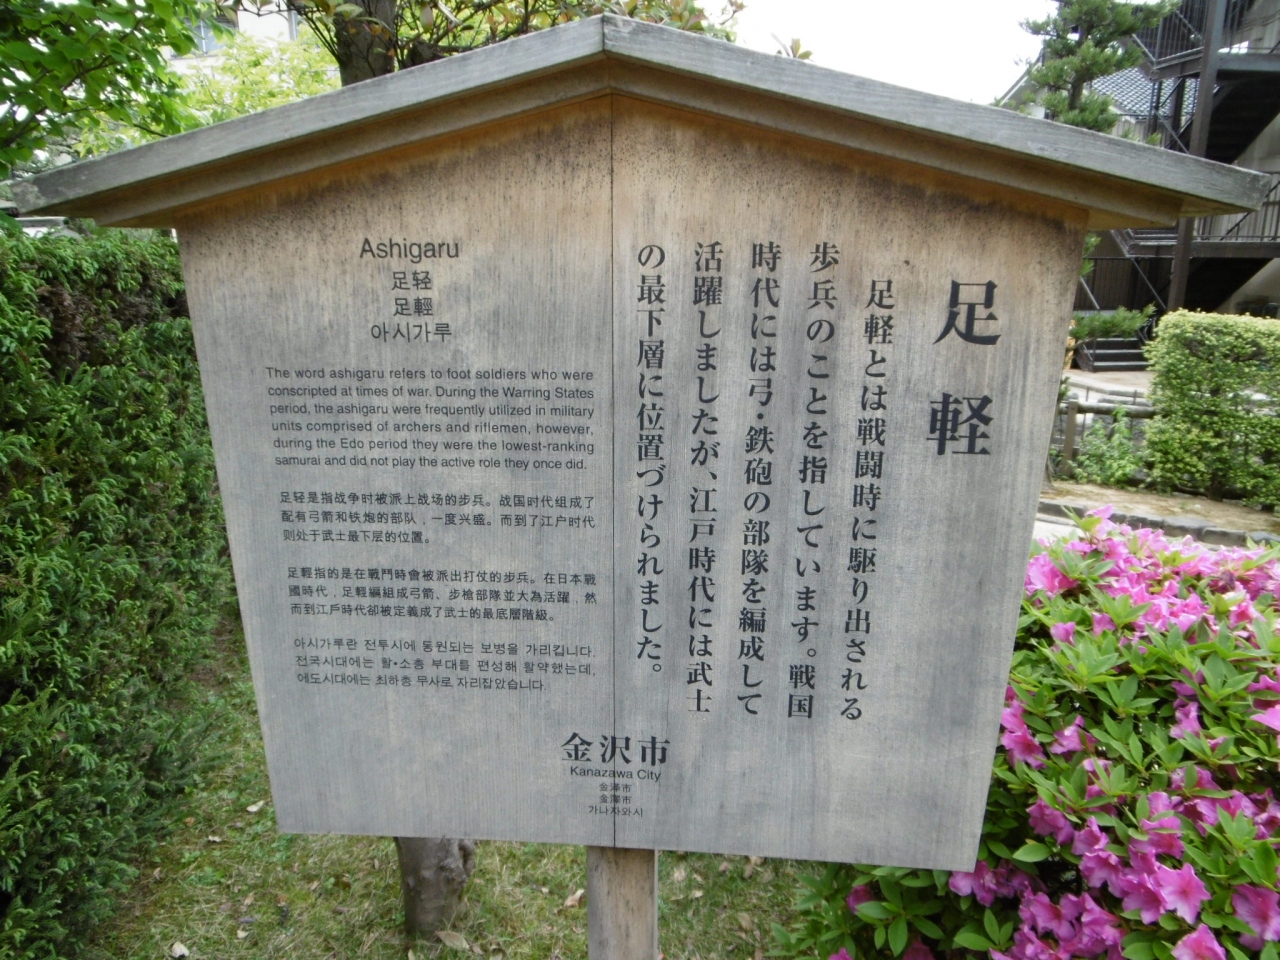 足軽
足軽とは戦闘時に駆り出される
歩兵のことを指しています。戦国
時代には弓・鉄砲の部隊を編成して
活躍しましたが、江戸時代には武士
の最下層に位置づけられました。
Ashigaru
足轻
足輕
아시가루
The word ashigaru refers to foot soldiers who were
conscripted at times of war. During the Warring States
period, the ashigaru were frequently utilized in military
units comprised of archers and riflemen, however,
during the Edo period they were the lowest-ranking
samurai and did not play the active role they once did.
足轻是指战争时被派上战场的步兵。战国时代组成了
配有弓箭和铁炮的部队，一度兴盛。而到了江户时代
则处于武士最下层的位置。
足輕指的是在戰鬥時會被派出打仗的步兵。在日本戰
國時代，足輕編組成弓箭、步槍部隊並大為活躍，然
而到江戶時代卻被定義成了武士的最底層階級。
아시가루란 전투시에 동원되는 보병을 가리킵니다.
전국시대에는 활•소총 부대를 편성해 활약했는데,
에도시대에는 최하층 무사로 자리잡았습니다.
金沢市
Kanazawa City
金泽市
金澤市
가나자와시